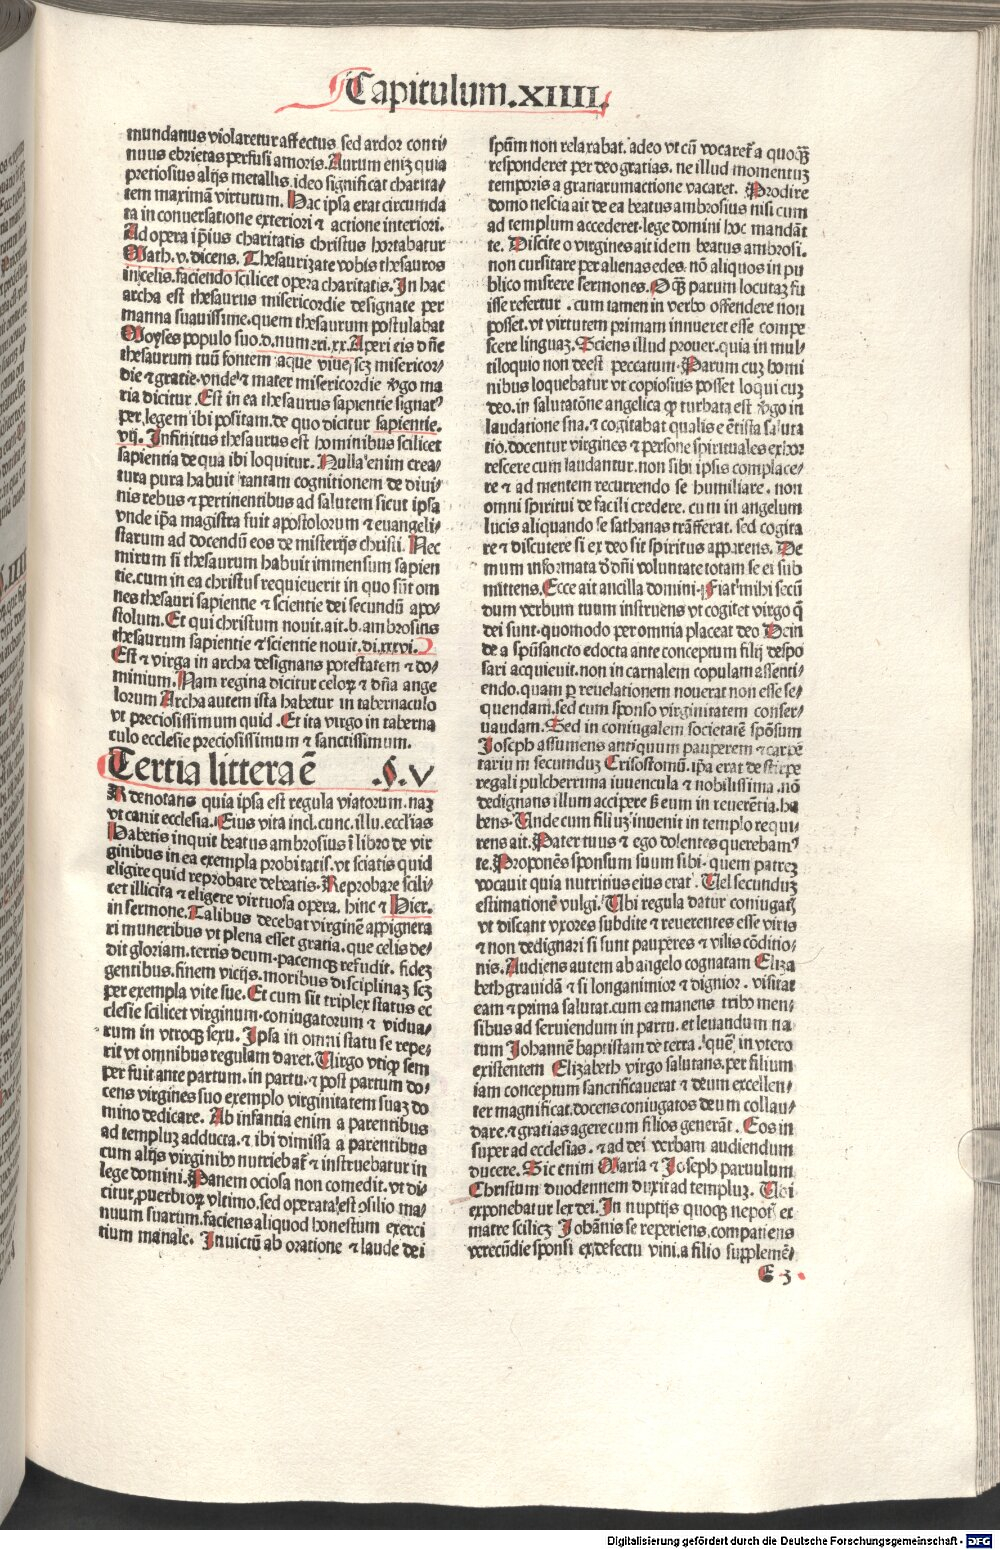 Capitulum.XIIII.
mundanus violaretur affectus sed ardor conti/
nuus ebrietas perfusi amoris. Aurum eniz quia
pretiosius alijs metallis. ideo significat charita/
tem maximā virtutum. Hac ipsa erat circumda
ta in conversatione exteriori ⁊ actione interiori.
Ad opera ip̄ius charitatis christus hortabatur
Math. v. dicens. Thesaurizate vobis thesauros
in celis. faciendo scilicet opera charitatis. In hac
archa est thesaurus misericordie designate per
manna suauissime. quem thesaurum postulabat
Moyses populo suo. d. num eri. xx. Aperi eis dñe
thesaurum tuū fontem aque viue, scz misericor/
die ⁊ gratie. vnde ⁊ mater misericordie v̄go ma
ria dicitur. Est in ea thesaurus sapientie signat⁹
per legem ibi positam. de quo dicitur sapientie.
vij. Infinitus thesaurus est hominibus scilicet
sapientia de qua ibi loquitur. Nulla enim crea/
tura pura habuit tantam cognitionem de diui/
nis rebus ⁊ pertinentibus ad salutem sicut ipsa
vnde ip̄a magistra fuit apostolorum ⁊ euangeli/
starum ad docendū eos de misterijs christi. Nec
mirum si thesaurum habuit immensum sapien
tie. cum in ea christus requieuerit in quo sūt om
nes thesauri sapientie ⁊ scientie dei secundū apo/
stolum. Et qui christum nouit. ait. b. ambrosius
thesaurum sapientie ⁊ scientie nouit. di. xxxvi.
Est ⁊ virga in archa designans potestatem ⁊ do/
minium. Nam regina dicitur celoꝝ ⁊ dña ange
lorum Archa autem ista habetur in tabernaculo
vt preciosissimum quid. Et ita virgo in taberna
culo ecclesie preciosissimum ⁊ sanctissimum.
Tertia littera ē .§. V
R denotans quia ipsa est regula viatorum. naz
vt canit ecclesia. Eius vita incl. cunc. illu. eccl'ias
Habetis inquit beatus ambrosius ī libro de vir
ginibus in ea exempla probitatis. vt sciatis quid
eligire quid reprobare debeatis. Reprobare scili/
cet illicita ⁊ eligere virtuosa opera. hinc ⁊ Hier.
in sermone. Talibus decebat virginē appignera
ri muneribus vt plena esset gratia. que celis de/
dit gloriam. terris deum. pacemqꝫ refudit. fidez
gentibus. finem vicijs. moribus disciplinaz scz
per exempla vite sue. Et cum sit triplex status ec
clesie scilicet virginum. coniugatorum ⁊ vidua/
rum in vtroqꝫ sexu. Ipsa in omni statu se repe/
rit vt omnibus regulam daret. Virgo vtiqꝫ sem
per fuit ante partum. in partu. ⁊ post partum do/
cens virgines suo exemplo virginitatem suaz do
mino dedicare. Ab infantia enim a parentibus
ad templuz adducta. ⁊ ibi dimissa a parentibus
cum alijs virginibꝰ nutriebat̄ ⁊ instruebatur in
lege domini. Panem ociosa non comedit. vt di/
citur, puerbioꝝ vltimo. sed operata est ꝯsilio ma/
nuum suarum. faciens aliquod honestum exerci
tium manale. Inuictū ab oratione ⁊ laude dei
spm̄ non relaxabat. adeo vt cū vocaret̄ a quoqꝫ̄
responderet per deo gratias. ne illud momentuz
temporis a gratiarumactione vacaret. Prodire
domo nescia ait de ea beatus ambrosius nisi cum
ad templum accederet. lege domini hoc mandāt
te. Discite o virgines ait idem beatus ambrosi.
non cursitare per alienas edes. nō aliquos in pu
blico miscere sermones. O qꝫ̄ parum locutaz fu
isse refertur. cum tamen in verbo offendere non
posset. vt virtutem primam innueret esse compe
scere linguaz. Sciens illud prouer. quia in mul/
tiloquio non deest peccatum. Parum cuz homi
nibus loquebatur vt copiosius posset loqui cuz
deo. in salutatōne angelica qꝫ turbata est v̄go in
laudatione sua. ⁊ cogitabat qualis eēt ista saluta
tio. docentur virgines ⁊ persone spirituales exhor
rescere cum laudantur. non sibi ipsis complace/
re ⁊ ad mentem recurrendo se humiliare. non
omni spiritui de facili credere. cum in angelum
lucis aliquando se sathanas trāsferat. sed cogita
re ⁊ discutere si ex deo sit spiritus apparens. De
mum informata d̄ dn̄i voluntate totam se ei sub
mittens. Ecce ait ancilla domini. Fiat mihi secū
dum verbum tuum instruens vt cogitet virgo q̄
dei sunt. quomodo per omnia placeat deo Dein
de a spūsancto edocta ante conceptum filij despo
sari acquieuit. non in carnalem copulam assenti/
endo. quam ꝑ reuelationem nouerat non esse se/
quendam. sed cum sponso virginitatem conser/
uandam. Sed in coniugalem societatē spōsum
Joseph assumens antiquum pauperem ⁊ carpē
tarium secunduz Crisostomū. ip̄a erat de stirpe
regali pulcherrima iuuencula ⁊ nobilissima. nō
dedignans illum accipere ß eum in reuerētia. ha
bens. Unde cum filiuz inuenit in templo requi/
rens ait. Pater tuus ⁊ ego dolentes querebam⁹
te. Proponēs sponsum suum sibi. quem patrez
vocauit quia nutritius eius erat. Vel secunduz
estimationē vulgi. Ubi regula datur coniugatꝫ
vt discant vxores subdite ⁊ reuerentes esse viris
⁊ non dedignari si sunt pauperes ⁊ vilis cōditio/
nis. Audiens autem ab angelo cognatam Eliza
beth grauidā ⁊ si longanimior ⁊ dignior. visitat
eam ⁊ prima salutat. cum ea manens tribꝰ men/
sibus ad seruiendum in partu. et leuandum na
tum Johannē baptistam de terra. quē in vtero
existentem Elizabeth virgo salutans. per filium
iam conceptum sanctificauerat ⁊ deum excellen/
ter magnificat. docens coniugatos deum collau/
dare. ⁊ gratias agere cum filios generāt. Eos in
super ad ecclesias. ⁊ ad dei verbam audiendum
ducere. Sic enim Maria ⁊ Joseph paruulum
Christum duodennem duxit ad templuz. Ubi
exponebatur lex dei. In nuptijs quoqꝫ nepot̄ et
matre scilicꝫ Johānis se reperiens, compatiens
verecūdie sponsi ex defectu vini. a filio supplemē/
E 3
Digitalisierung gefördert durch die Deutsche Forschungsgemeinschaft - DFG